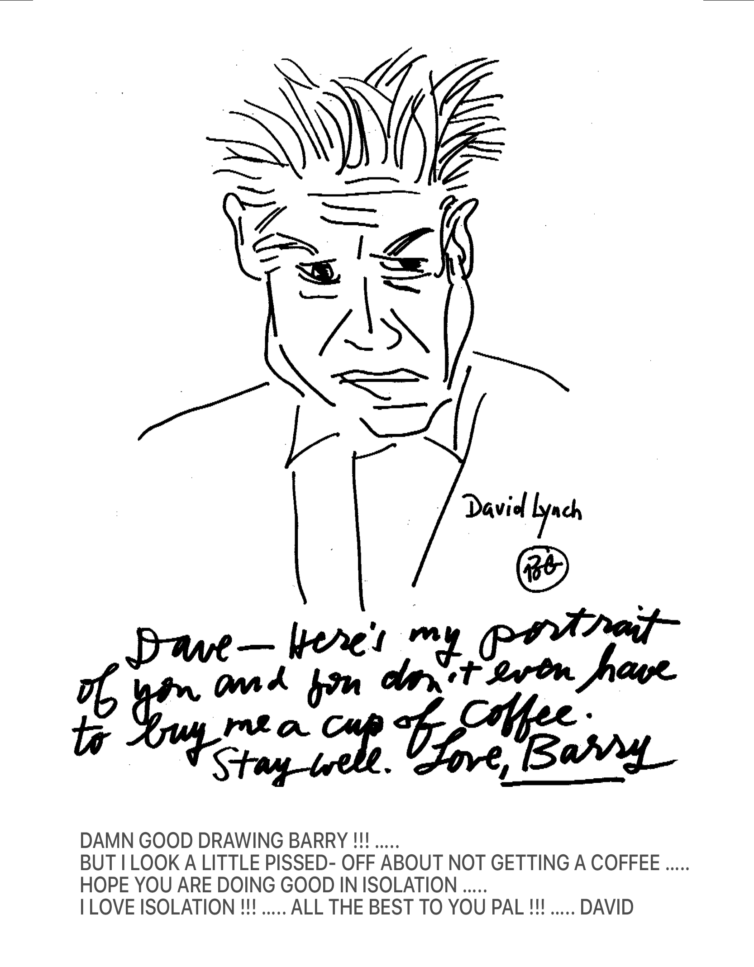 David Lynch
BG
Dave— Here's my portrait
of you and you don't even have
to buy me a cup of coffee.
Stay well. Love, Barry
DAMN GOOD DRAWING BARRY !!! .....
BUT I LOOK A LITTLE PISSED- OFF ABOUT NOT GETTING A COFFEE .....
HOPE YOU ARE DOING GOOD IN ISOLATION .....
I LOVE ISOLATION !!! ..... ALL THE BEST TO YOU PAL !!! ..... DAVID